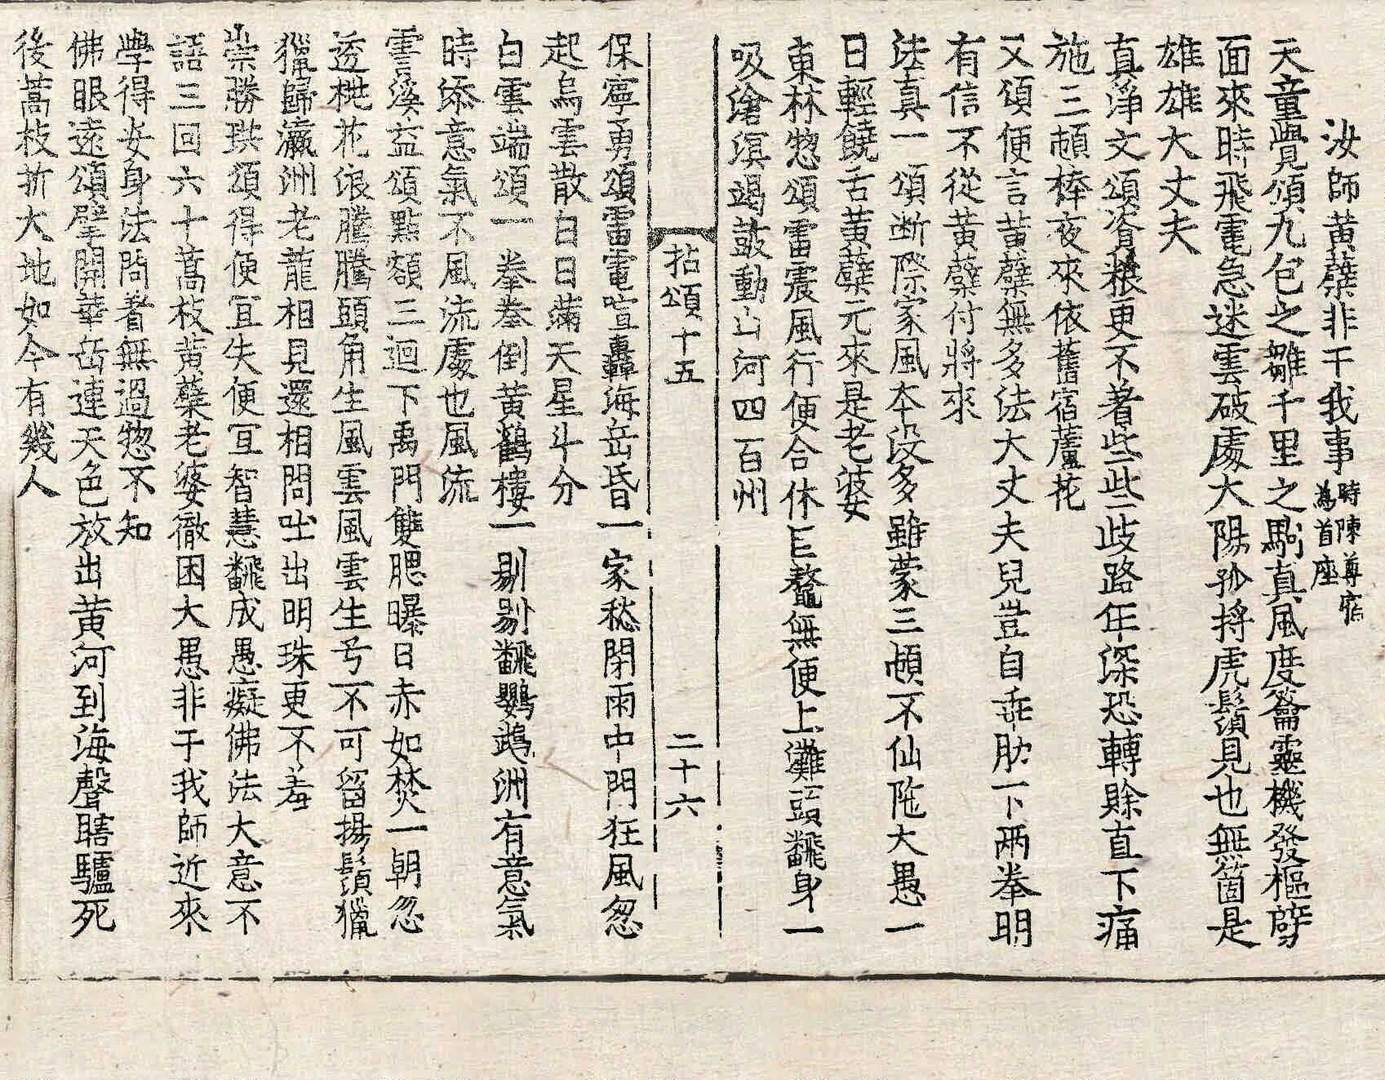 汝師黃蘗非干我事時陳尊宿為首座
天童覺頌九包之雛千里之駒真風度籥靈機發樞劈
面來時飛電急迷雲破處大陽孤捋虎鬚見也無箇是
雄雄大丈夫
真淨文頌資粮更不著些些歧路年深恐轉賒直下痛
施三頓棒夜來依舊宿蘆花
又頌便言黃蘗無多法大丈夫兒豈自乖肋下兩拳明
有信不從黃蘗付將來
法真一頌断際家風本没多雖蒙三頓不仙陁大愚一
日輕饒舌黃蘗元來是老婆
東林惣頌雷震風行便合休巨鼇無便上灘頭飜身一
吸滄溟竭鼓動山河四百州
拈頌十五
二十六
保寧勇頌雷電喧轟海岳昏一家愁閉雨中門狂風忽
起烏雲散白日滿天星斗分
白雲端頌一拳拳倒黃鶴樓一剔剔飜鸚鵡洲有意氣
時添意氣不風流處也風流
雲溪益頌點額三迴下禹門雙腮曝日赤如焚一朝忽
透桃花浪騰騰頭角生風雲風雲生兮不可留揚鬚獵
獵歸瀛洲老龍相見還相問吐出明珠更不羞
崇勝珙頌得便冝失便冝智慧飜成愚癡佛法大意不
語三回六十蒿枝黃蘗老婆徹困大愚非干我師近來
學得安身法問着無過惣不知
佛眼遠頌擘開華岳連天色放出黄河到海聲瞎驢死
後蒿枝折大地如今有幾人